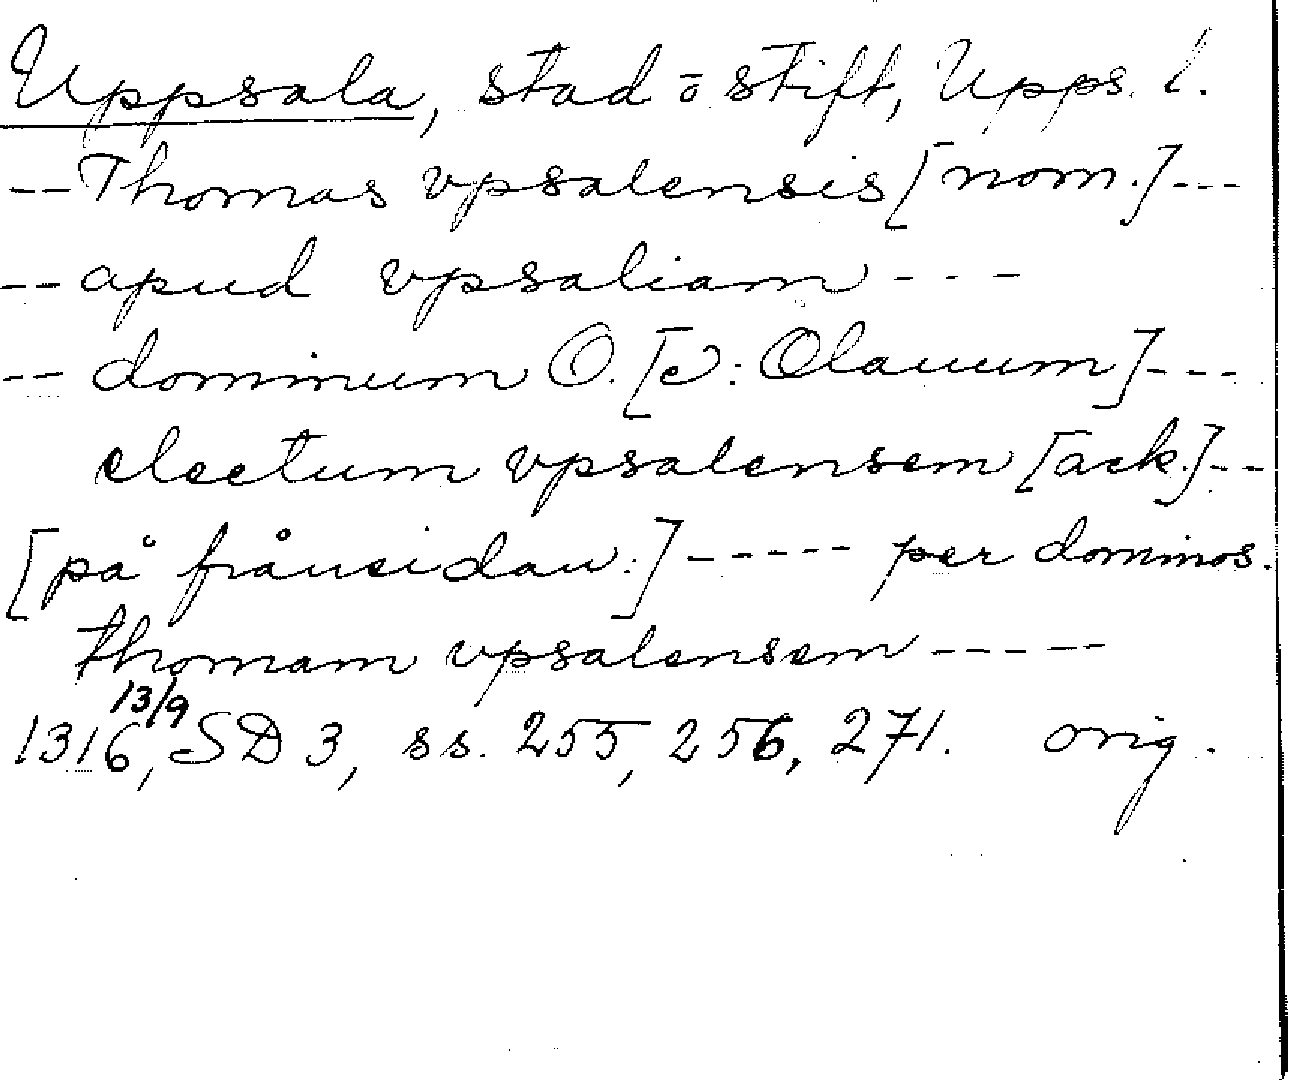 Uppsala, stad o stift, Upps. l.
-- Thomas vpsalensis [nom.] ---
-- apud vpsaliam ---
-- dominum O. [ɔ: Olauum] ---
electum vpsalensem [ack.] --
[på frånsidan:] ----- per dominos.
thomam vpsalensem -----
1316 13/9, SD 3, ss. 255, 256, 271. orig.